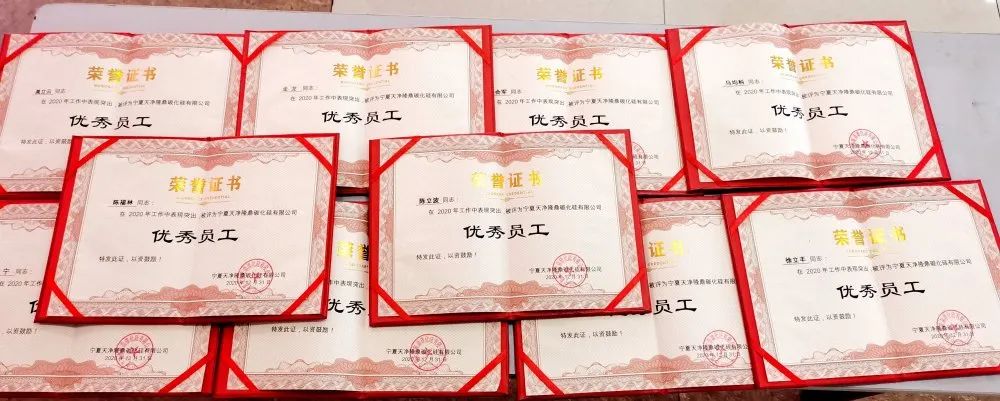 荣誉证书
黄立云 同志:
在 2020 年工作中表现突出,被评为宁夏天净隆鼎碳化硅有限公司
优秀员工
特发此证,以资鼓励!
荣誉证书
龙 同志:
在 2020 年工作中表现突出,被评为宁夏天净隆鼎碳化硅有限公司
优秀员工
荣誉证书
会军 同志:
在 2020 年工作中表现突出,被评为宁夏天净隆鼎碳化硅有限公司
优秀员工
特发此证,以资鼓励!
荣誉证书
同志:
在 2020 年工作中表现突出,被评为宁夏天净隆鼎碳化硅有限公司
优秀员工
特发此证,以资鼓励!
宁夏天净隆鼎碳化硅有限公司
2020年12月31日
荣誉证书
陈福林 同志:
在 2020 年工作中表现突出,被评为宁夏天净隆鼎碳化硅有限公司
优秀员工
特发此证,以资鼓励!
宁夏天净隆鼎碳化硅有限公司
2020年12月31日
荣誉证书
陈立波 同志:
在 2020 年工作中表现突出,被评为宁夏天净隆鼎碳化硅有限公司
优秀员工
特发此证,以资鼓励!
宁夏天净隆鼎碳化硅有限公司
2020年12月31日
宁 同志:
以资鼓励!
宁夏天净隆鼎碳化硅有限公司
2020年12月31日
证书
特发此证,以资鼓励!
宁夏天净隆鼎碳化硅有限公司
2020年12月31日
证书
特发此证,以资鼓励!
宁夏天净隆鼎碳化硅有限公司
2020年12月31日
荣誉证书
徐立丰 同志:
在 2020 年工作中表现突出,被评为宁夏天净隆鼎碳化硅有限公司
优秀员工
特发此证,以资鼓励!
宁夏天净隆鼎碳化硅有限公司
2020年12月31日